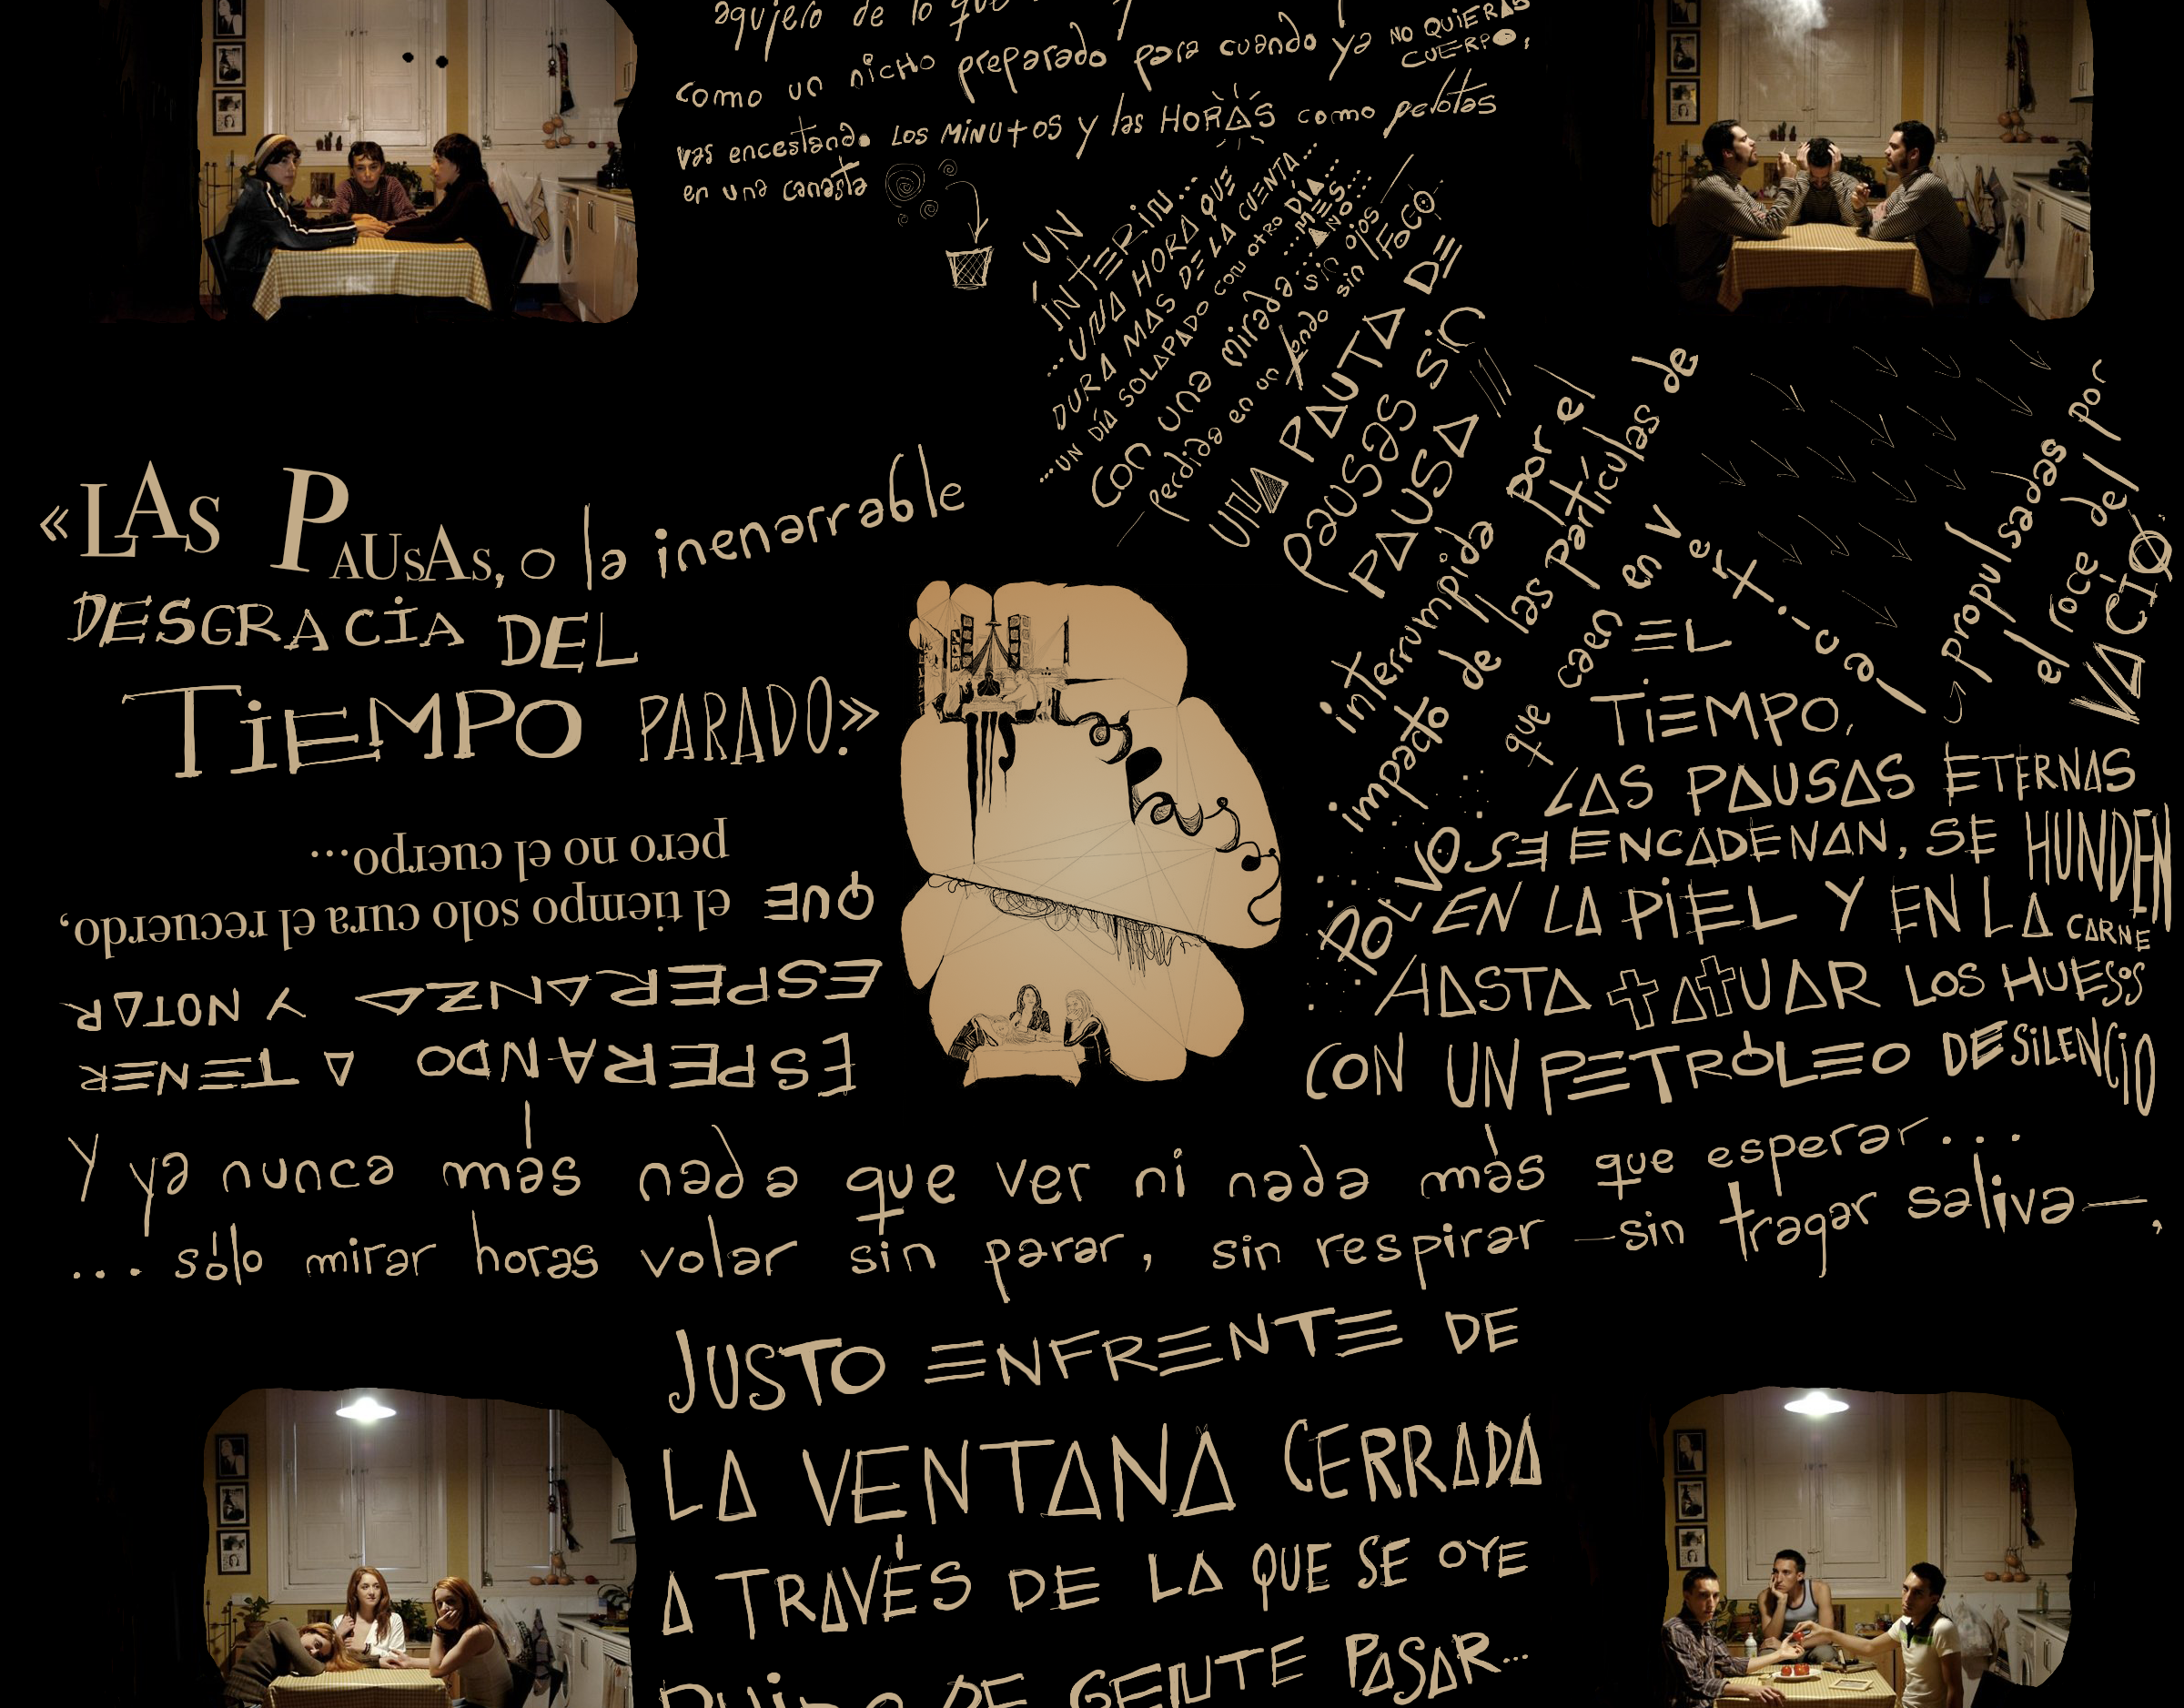 agujero de lo que
como un nicho preparado para cuando ya NO QUIERAS
CUERPO,
vas encestando LOS MINUTOS y las HORAS como pelotas
en una canasta
UN
ÍNTERIN...
...UNA HORA QUE
DURA MAS DE LA CUENTA...
...UN DÍA SOLAPADO CON OTRO DÍA...
...MES...
AÑO...
con una mirada sin ojos
perdida en un fondo sin FOCO
UNA PAUTA DE
pausas sin
PAUSA
interrumpida por el
impacto de las partículas de
POLVO
que caen en vertical
propulsadas por
el roce del
VACÍO.
«LAS PAUSAS, o la inenarrable
DESGRACIA DEL
TIEMPO PARADO.»
EL
TIEMPO,
LAS PAUSAS ETERNAS
SE ENCADENAN, SE HUNDEN
EN LA PIEL Y EN LA CARNE
HASTA TATUAR LOS HUESOS
CON UN PETRÓLEO DE SILENCIO
ESPERANDO A TENER
ESPERANZA Y NOTAR
QUE el tiempo solo cura el recuerdo,
pero no el cuerpo...
Y ya nunca más nada que ver ni nada más que esperar...
... sólo mirar horas volar sin parar, sin respirar —sin tragar saliva—,
JUSTO ENFRENTE DE
LA VENTANA CERRADA
A TRAVÉS DE LA QUE SE OYE
RUIDO DE GENTE PASAR...